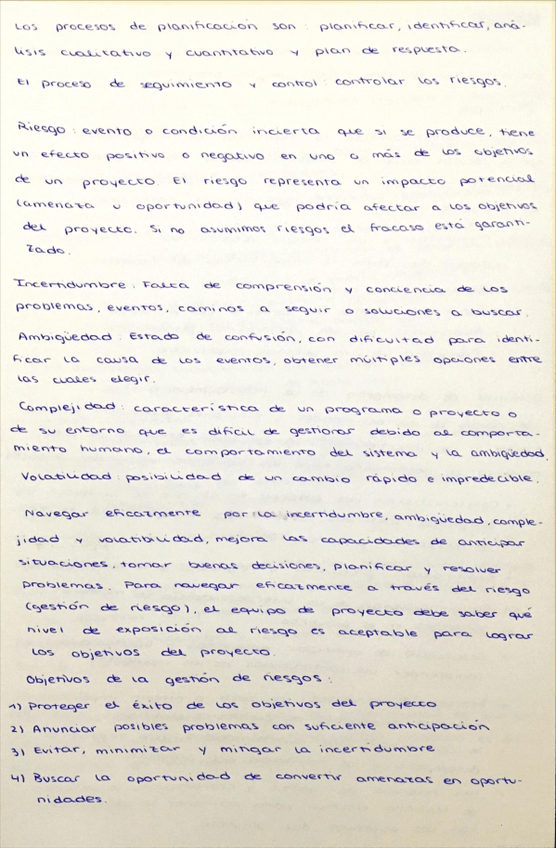 Los procesos de planificación son: planificar, identificar, aná-
lisis cualitativo y cuantitativo y plan de respuesta.
El proceso de seguimiento y control: controlar los riesgos.
Riesgo: evento o condición incierta que si se produce, tiene
un efecto positivo o negativo en uno o más de los objetivos
de un proyecto. El riesgo representa un impacto potencial
(amenaza u oportunidad) que podría afectar a los objetivos
del proyecto. Si no asumimos riesgos el fracaso está garanti-
zado.
Incertidumbre: Falta de comprensión y conciencia de los
problemas, eventos, caminos a seguir o soluciones a buscar.
Ambigüedad: Estado de confusión, con dificultad para identi-
ficar la causa de los eventos, obtener múltiples opciones entre
las cuales elegir.
Complejidad: característica de un programa o proyecto o
de su entorno que es difícil de gestionar debido al comporta-
miento humano, el comportamiento del sistema y la ambigüedad.
Volatilidad: posibilidad de un cambio rápido e impredecible.
Navegar eficazmente por la incertidumbre, ambigüedad, comple-
jidad y volatibilidad, mejora las capacidades de anticipar
situaciones, tomar buenas decisiones, planificar y resolver
problemas. Para navegar eficazmente a través del riesgo
(gestión de riesgo), el equipo de proyecto debe saber qué
nivel de exposición al riesgo es aceptable para lograr
los objetivos del proyecto.
Objetivos de la gestión de riesgos:
1) Proteger el éxito de los objetivos del proyecto
2) Anunciar posibles problemas con suficiente anticipación
3) Evitar, minimizar y mitigar la incertidumbre
4) Buscar la oportunidad de convertir amenazas en oportu-
nidades.